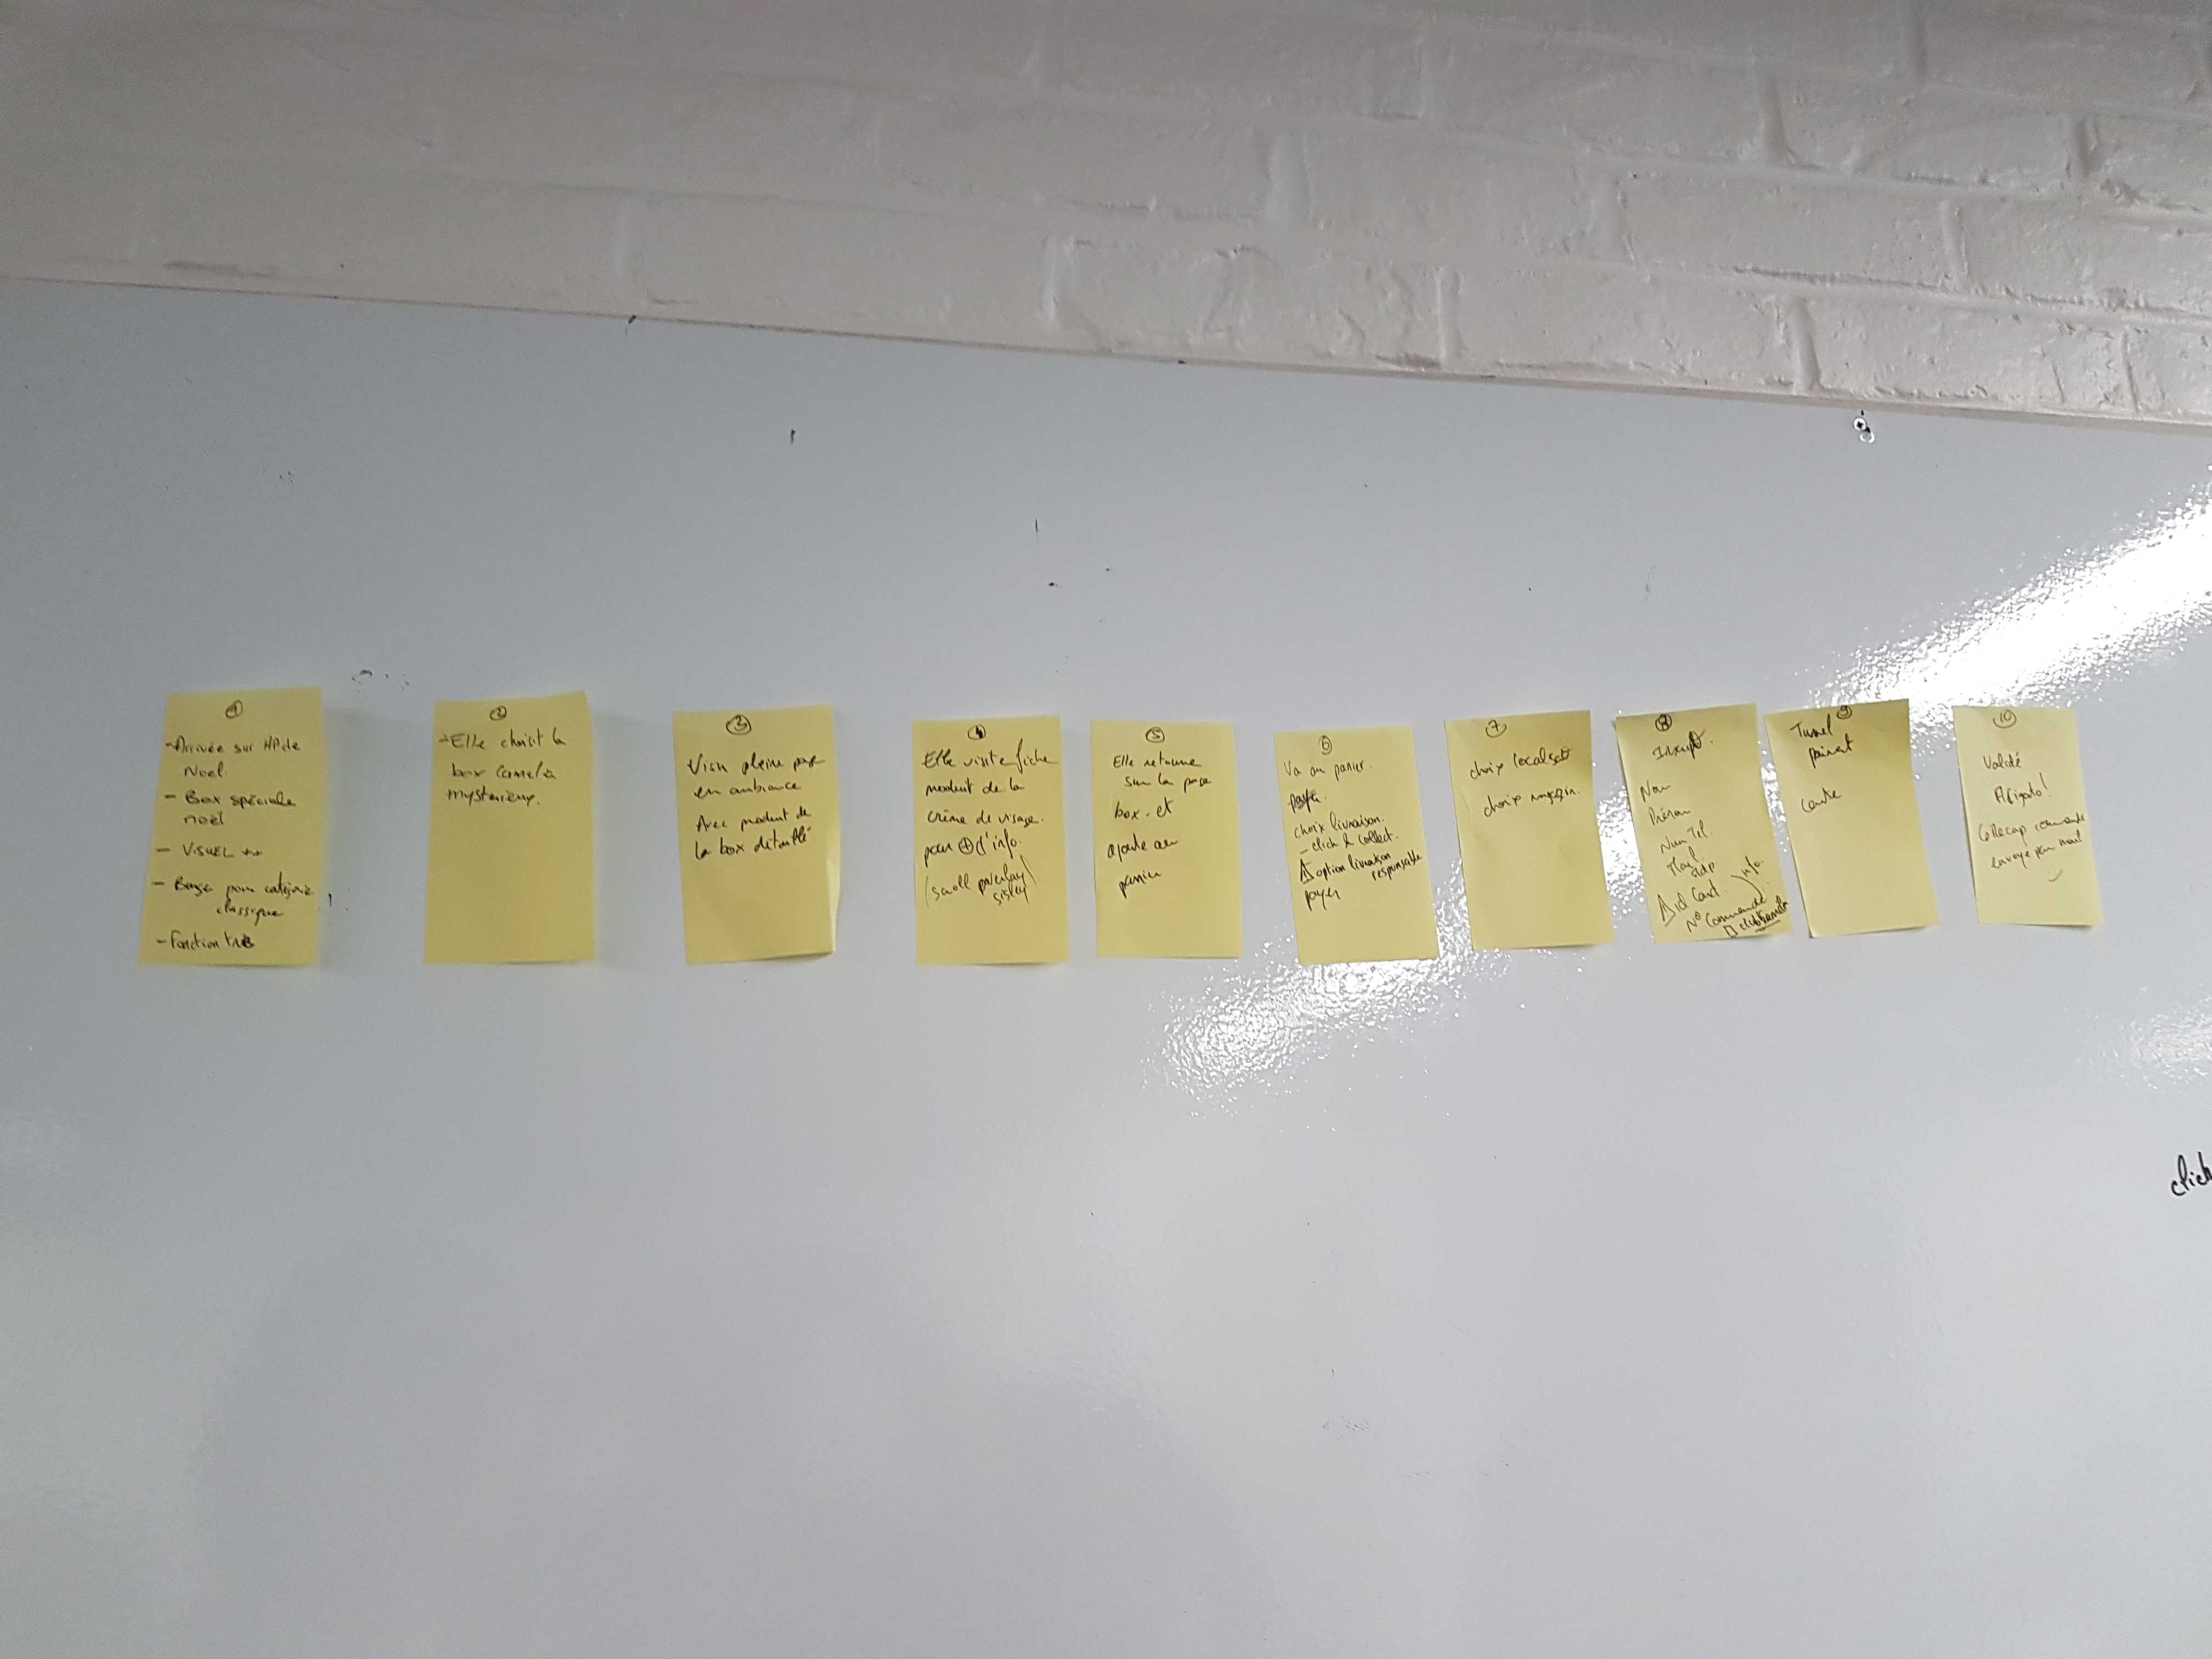 1
- Arrivée sur HP de
Noel.
- Box spéciale
noël
- VISUEL ++
- pour catégorie
classique
- Fonction
2
- Elle choisit la
box Camelia
mysterieux.
3
Visu pleine page
en ambiance
Avec produit de
la box détaillé
4
Elle visite fiche
produit de la
crème de visage.
pour + d'info.
(scroll
sisley)
5
Elle retourne
sur la page
box. et
ajoute au
panier
6
Va au panier.
choix livraison.
- click & collect.
option livraison
responsable
payer
7
choix
choix magasin.
8
Nom
Prénom
Num Tel.
Mail
info.
N° Commande
9
Tunnel
paiement
10
Validé
commande
envoyé par mail
click